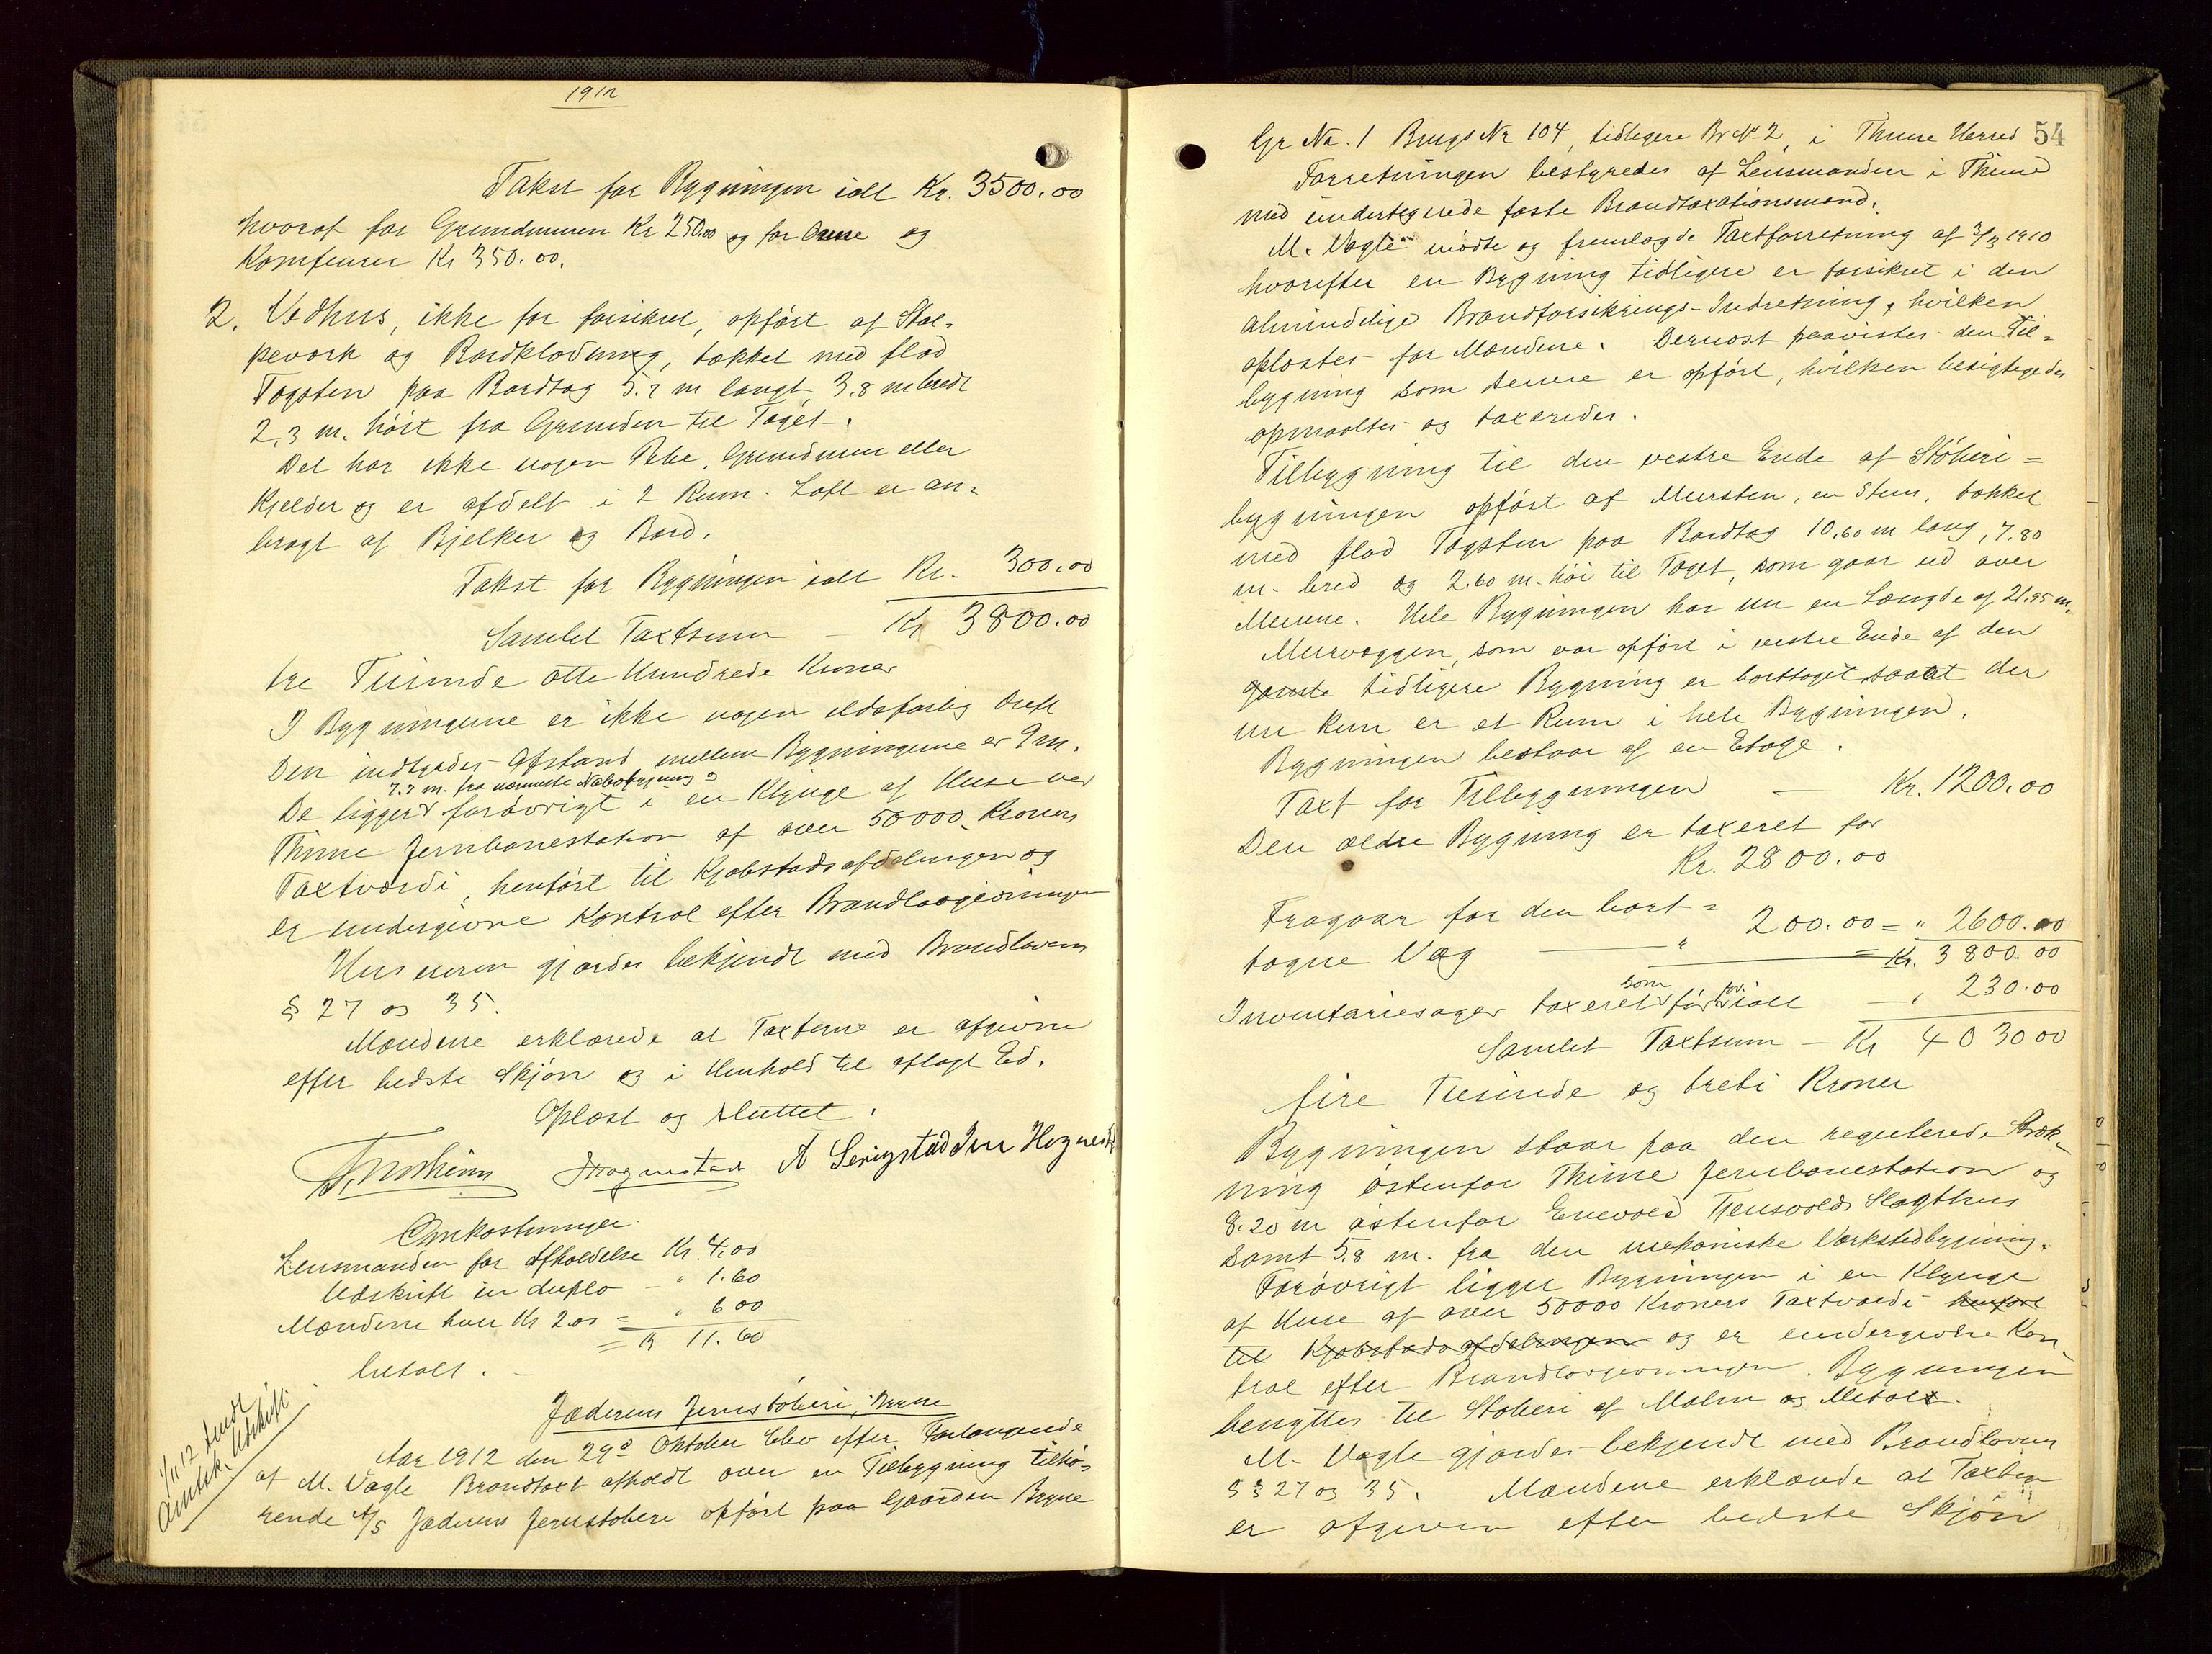 1912
Takst for Bygningen ialt Kr. 3500.00
hvoraf for Grundmuren Kr 250.00 og for Ovne og
Komfeurer Kr 350.00.
2. Vedhus, ikke før forsikret, opført af Stol-
peverk og Bordklædning, tækket med flad
Tagsten paa Bordtag 5.7 m langt 3,8 m bredt
2,3 m. høit fra Grunden til Taget.
Det har ikke nogen Pibe, Grundmur eller
Kjelder og er afdelt i 2 Rum. Loft er an-
bragt af Bjelker og Bord.
Takst for Bygningen ialt Kr. 300.00
Samlet Taxtsum - Kr 3800.00
tre Tusinde otte Hundrede Kroner
I Bygningerne er ikke nogen ildsfarlig Drift
Den indbyrdes Afstand mellem Bygningerne er 9 m.
7.7 m. fra nærmeste Nabobygning
De ligger forøvrigt i en Klynge af Huse ved
Thime Jernbanestation af over 50000 Kroners
Taxtværdi, henført til Kjøbstadsafdelingen og
er undergivne Kontrol efter Brandlovgivningen
Huseieren gjordes bekjendt med Brandlovens
§ 27 og 35.
Mændene erklærede at Taxterne er afgivne
efter bedste Skjøn og i Henhold til aflagt Ed.
Oplæst og sluttet.
Hognestad A Serigstad Iver Hognestad
Omkostninger
Lensmanden for Afholdelse Kr. 4.00
Udskrift in duplo - " 1.60
Mændene hver Kr 2.00 = " 6 00
= Kr 11.60
betalt.
1/11 12 sendt
Amtsk. Udskrift.
Jæderens Jernstøberi, Bryne
Aar 1912 den 29d Oktober blev efter Forlangende
af M. Vagle Brandtaxt afholdt over en Tilbygning tilhø-
rende A/S Jæderens Jernstøberi opført paa Gaarden Bryne
54
Gr No. 1 Brugs No 104, tidligere Br No 2, i Thime Herred
Forretningen bestyredes af Lensmanden i Thime
med undertegnede faste Brandtaxationsmænd.
M. Vagle mødte og fremlagde Taxtforretning af 3/3 1910
hvorefter en Bygning tidligere er forsikret i den
almindelige Brandforsikrings-Indretning, hvilken
oplæstes for Mændene. Dernæst paavistes den Til-
bygning som senere er opført, hvilken besigtigedes
opmaaltes og taxeredes.
Tilbygning til den vestre Ende af Støberi=
bygningen opført af Mursten, en Sten, tækket
med flad Tagsten paa Bordtag 10.60 m lang, 7.80
m. bred og 2.60 m. høi til Taget, som gaar ud over
Murene. Hele Bygningen har nu en Længde af 21.95 m.
Murvæggen, som var opført i vestre Ende af den
gamle tidligere Bygning er borttaget saaat der
nu kun er et Rum i hele Bygningen.
Bygningen bestaar af en Etage.
Taxt for Tilbygningen - Kr. 1200.00
Den ældre Bygning er taxeret for
Kr. 2800.00
Fragaar for den bort=
tagne Væg - " 200.00 = " 2600.00
= Kr. 3800.00
som
Inventariesager taxeret før ialt - " 230.00
Samlet Taxtsum - Kr 4030 00
fire Tusinde og treti Kroner
Bygningen staar paa den regulerede Stræk-
ning østenfor Thime Jernbanestation og
8.20 m østenfor Enevold Tjensvolds Slagthus
samt 5.8 m. fra den mekaniske Værkstedbygning.
Forøvrigt ligger Bygningen i en Klynge
af Huse af over 50000 Kroners Taxtværdi henført
til Kjøbstadsafdelingen og er undergivne Kon-
trol efter Brandlovgivningen. Bygningen
benyttes til Støberi af Malm og Metal.
M. Vagle gjordes bekjendt med Brandlovens
§§ 27 og 35. Mændene erklærede at Taxten
er afgiven efter bedste Skjøn